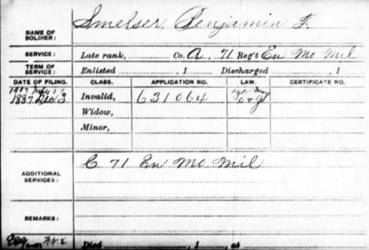 NAME OF SOLDIER: Smelser, Benjamin F.
SERVICE: Late rank, Co. A, 71 Reg't En Mo Mil
TERM OF SERVICE: Enlisted , 1 Discharged , 1
DATE OF FILING. CLASS. APPLICATION NO. LAW. CERTIFICATE NO.
1887 Dec 3 Invalid, 631064
Widow,
Minor,
ADDITIONAL SERVICES: C 71 En Mo Mil
REMARKS:
Died , 1 , at